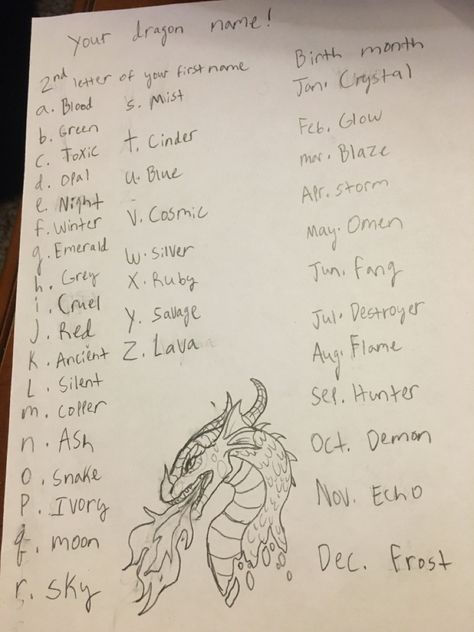 Your dragon name!
2nd letter of your first name
a. Blood
b. Green
c. Toxic
d. Opal
e. Night
f. Winter
g. Emerald
h. Grey
i. Cruel
J. Red
K. Ancient
L. Silent
m. Copper
n. Ash
o. Snake
P. Ivory
q. moon
r. Sky
s. Mist
t. Cinder
u. Blue
v. Cosmic
w. Silver
x. Ruby
y. Savage
z. Lava
Birth month
Jan. Crystal
Feb. Glow
mar. Blaze
Apr. storm
May. Omen
Jun. Fang
Jul. Destroyer
Aug. Flame
Sep. Hunter
Oct. Demon
Nov. Echo
Dec. Frost